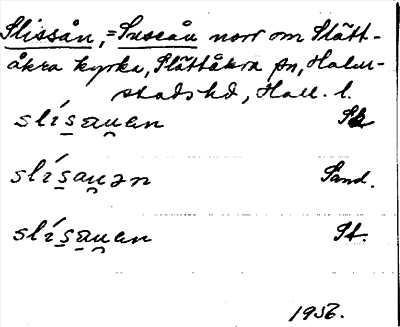 Slissån, = Susån norr om Slätt-
åkra kyrka, Slättåkra sn, Halm-
stads hd, Hall. l.
slísau̯en Sk
slísau̯ən Sand.
slísau̯en St.
1956.